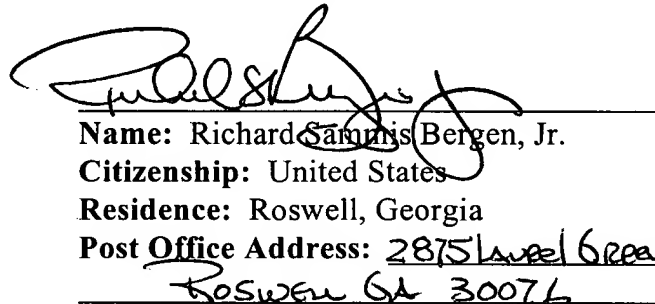 Name: Richard Sammis Bergen, Jr.
Citizenship: United States
Residence: Roswell, Georgia
Post Office Address: 2875 Laurel Green
Roswell GA 30076